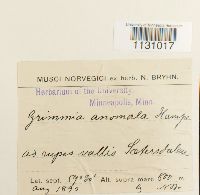 1131017
MUSCI NORVEGICI ex herb. N. BRYHN.
Herbarium of the University
Minneapolis, Minn.
Grimmia anomala Hampe
ad rupes vallis Sætersdalen
Lat. sept. 59°30' Alt. supra mare 600 m.
Aug 1893